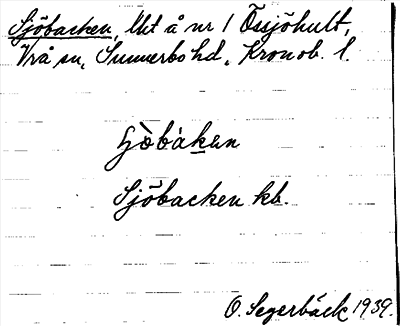 Sjöbacken, lht å nr 1 Össjöhult,
Vrå sn, Sunnerbo hd, Kronob. l.
Sjöbacken kb.
O. Segerbäck 1939.